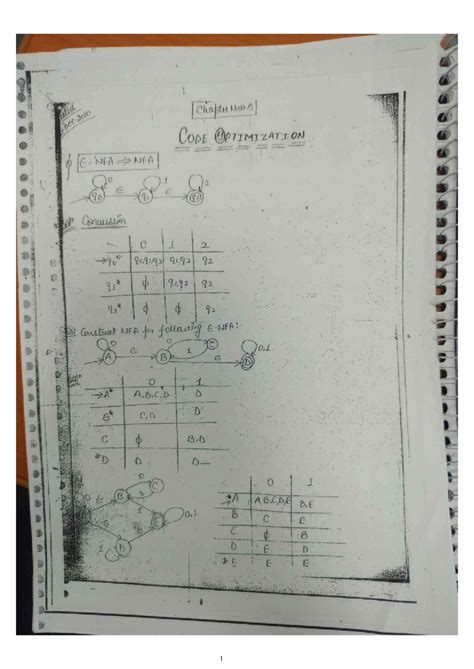 Chapter No:8
CODE OPTIMIZATION
ϕ E-NFA ⇒ NFA
0 1 2
q0 ε q1 ε q0
Conversion
0 1 2
→q0* q0q1q2 q1q2 q2
q1* ϕ q1q2 q2
q2* ϕ ϕ q2
Construct NFA for following E-NFA:
0 0 0,1
A ε B 1 C ε D
0 1
→A* A,B,C,D D
B* C,D D
C ϕ B,D
*D D D
0 1
A A,B,C,D,E D,E
B C E
C ϕ B
D E D
*E E E
0
ε B C
0,1
D E
1
1